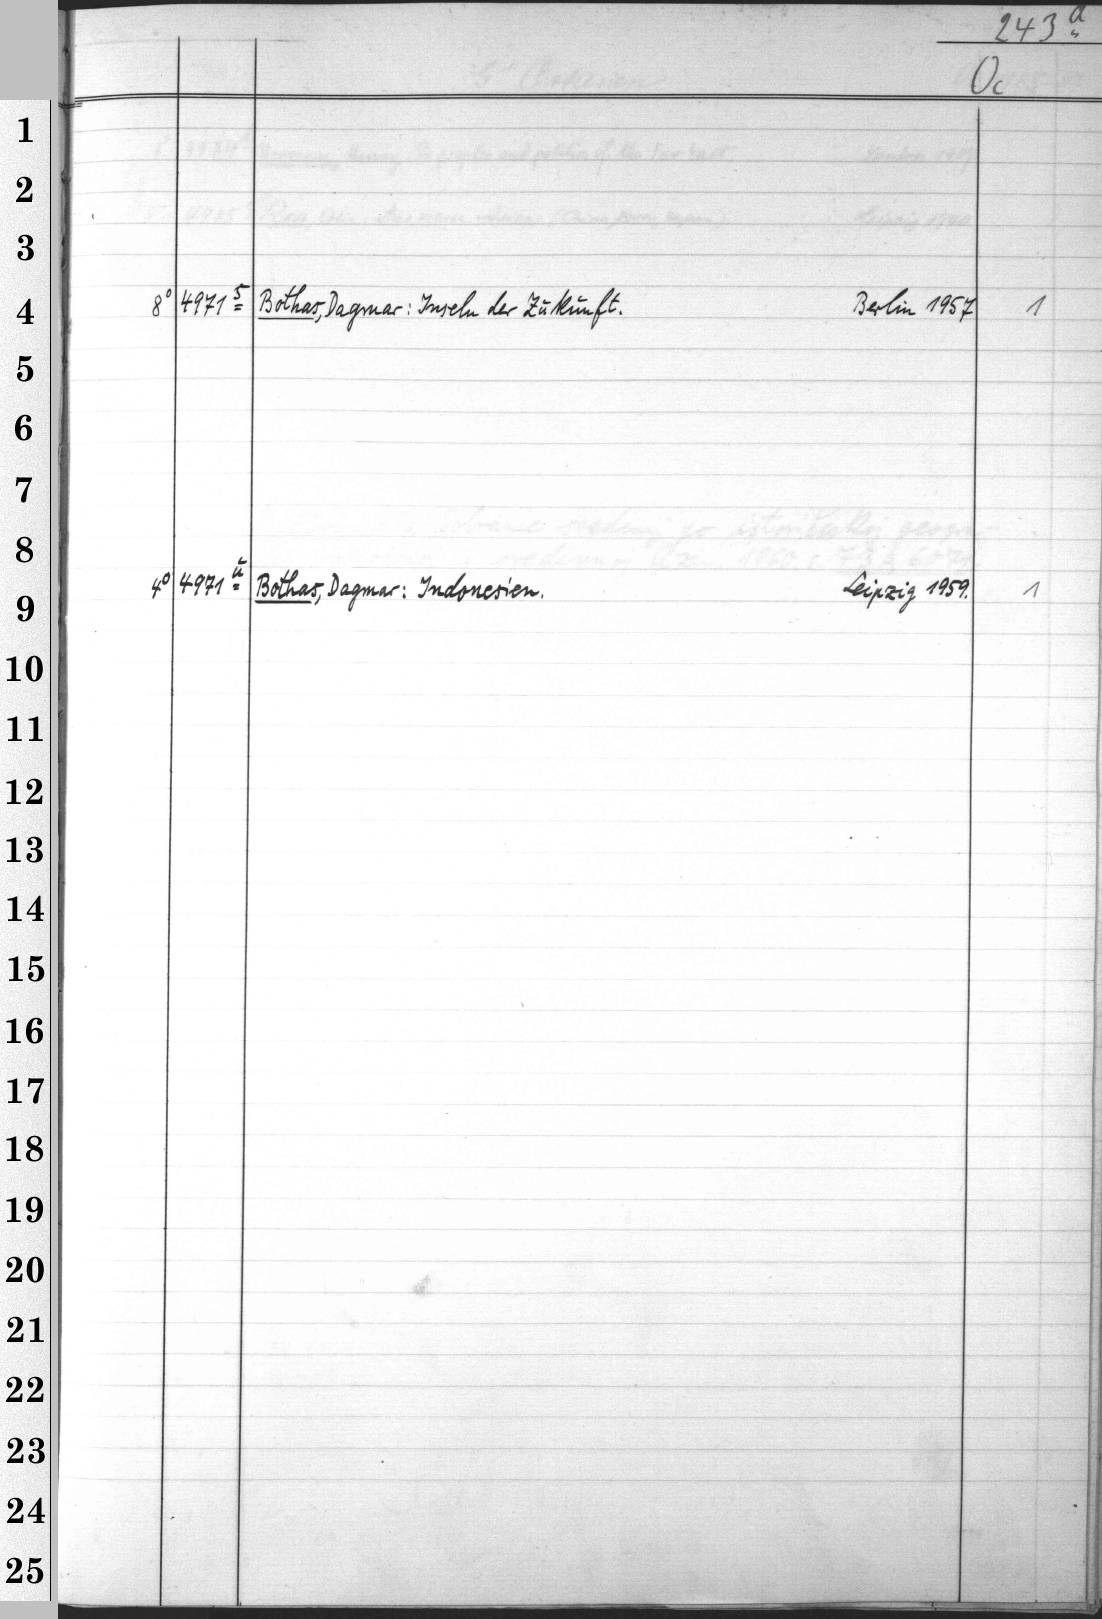 243 a
Oc
1
2
3
8° 4971 5 Bothas, Dagmar: Inseln der Zukunft. Berlin 1957 1
4
5
6
7
8
4° 4971 u Bothas, Dagmar: Indonesien. Leipzig 1959. 1
9
10
11
12
13
14
15
16
17
18
19
20
21
22
23
24
25